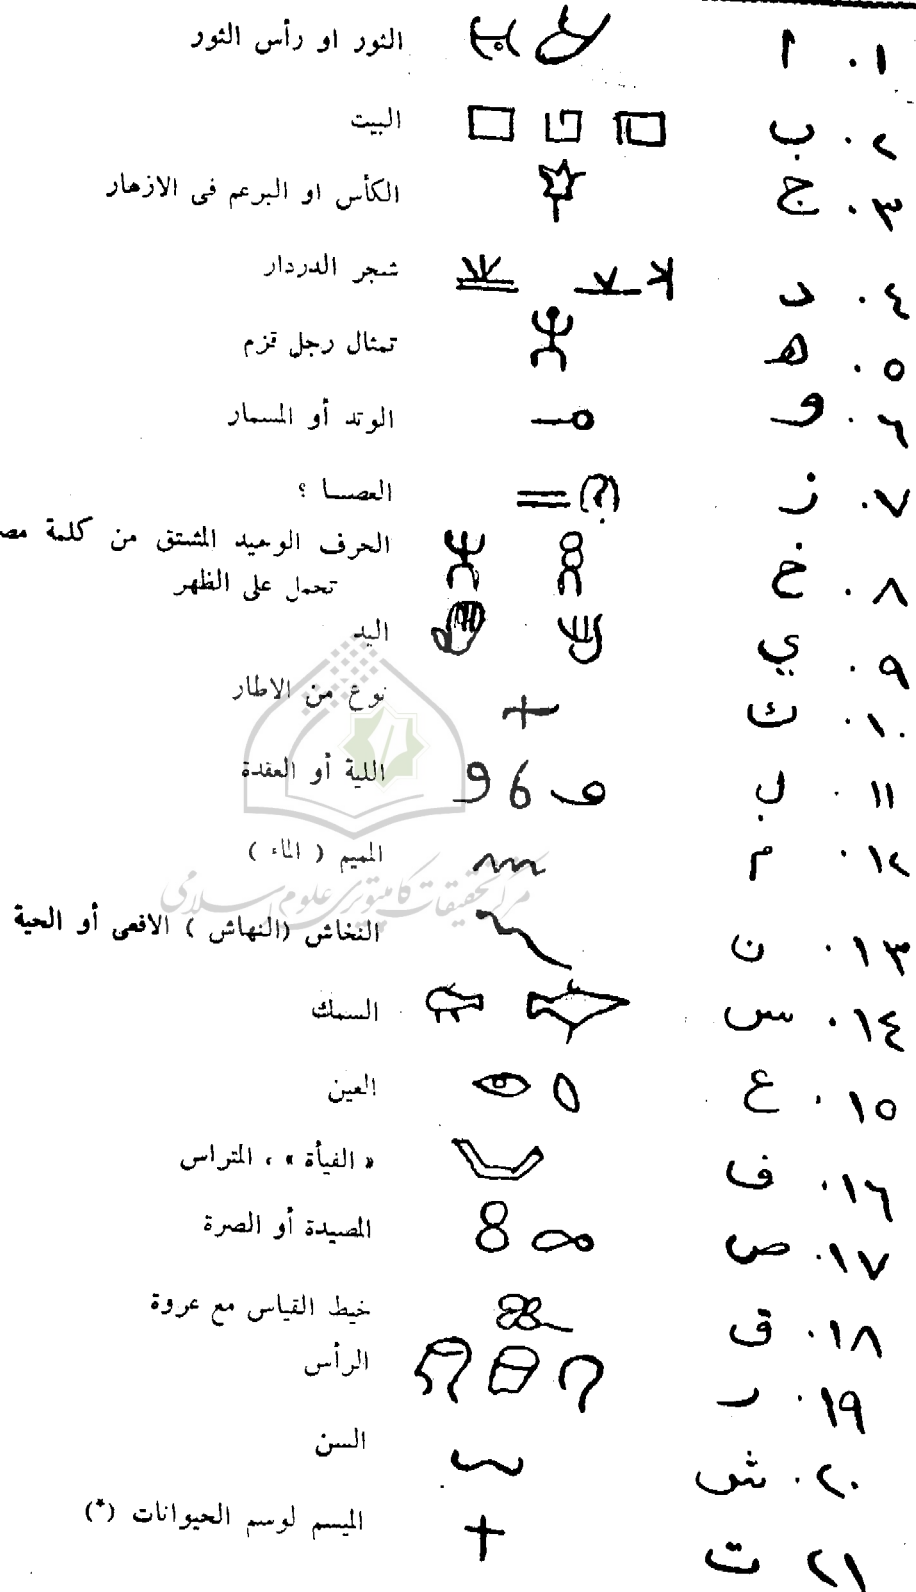 ١. أ الثور او رأس الثور
٢. ب البيت
٣. ج الكأس او البرعم فى الازهار
٤. د شجر الدردار
٥. ه تمثال رجل قزم
٦. و الوتد أو المسمار
٧. ز (؟) العصا ؟
٨. خ الحرف الوحيد المشتق من كلمة
تحمل على الظهر
٩. ي اليد
١٠. ك نوع من الاطار
١١. ل اللية أو العقدة
١٢. م الميم ( الماء )
١٣. ن النخاش (النهاش ) الافعى أو الحية
١٤. س السمك
١٥. ع العين
١٦. ف « الفيأة » ، المتراس
١٧. ص المصيدة أو الصرة
١٨. ق خيط القياس مع عروة
١٩. ر الرأس
٢٠. ش السن
٢١ ت الميسم لوسم الحيوانات (*)
مركز تحقيقات كامپيوترى علوم اسلامى